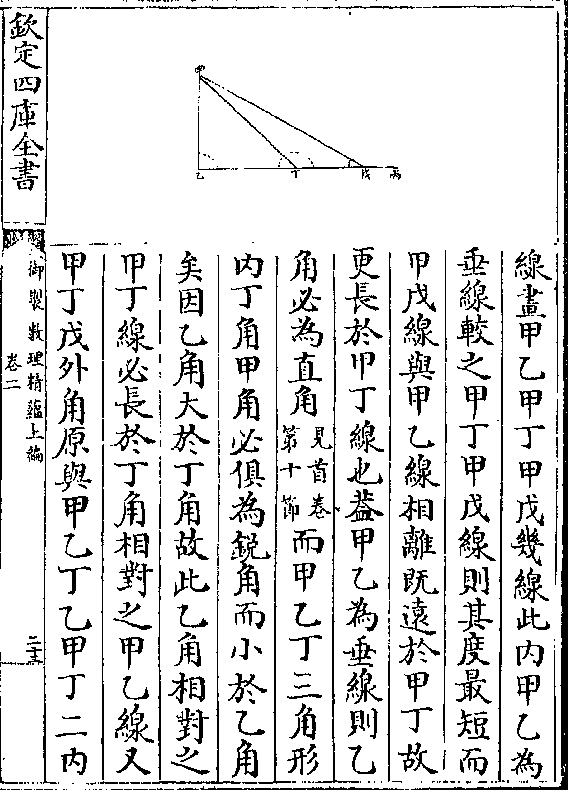 線畫甲乙甲丁甲戊幾線此内甲乙為
垂線較之甲丁甲戊線則其度最短而
甲戊線與甲乙線相離既遠於甲丁故
更長於甲丁線也葢甲乙為垂線則乙
角必為直角見首卷第十節而甲乙丁三角形
内丁角甲角必俱為鋭角而小於乙角
矣因乙角大於丁角故此乙角相對之
甲丁線必長於丁角相對之甲乙線又
甲丁戊外角原與甲乙丁乙甲丁二内
甲
乙
丁
戊
丙
欽定四庫全書
御製數理精蘊上編
卷二
二十三